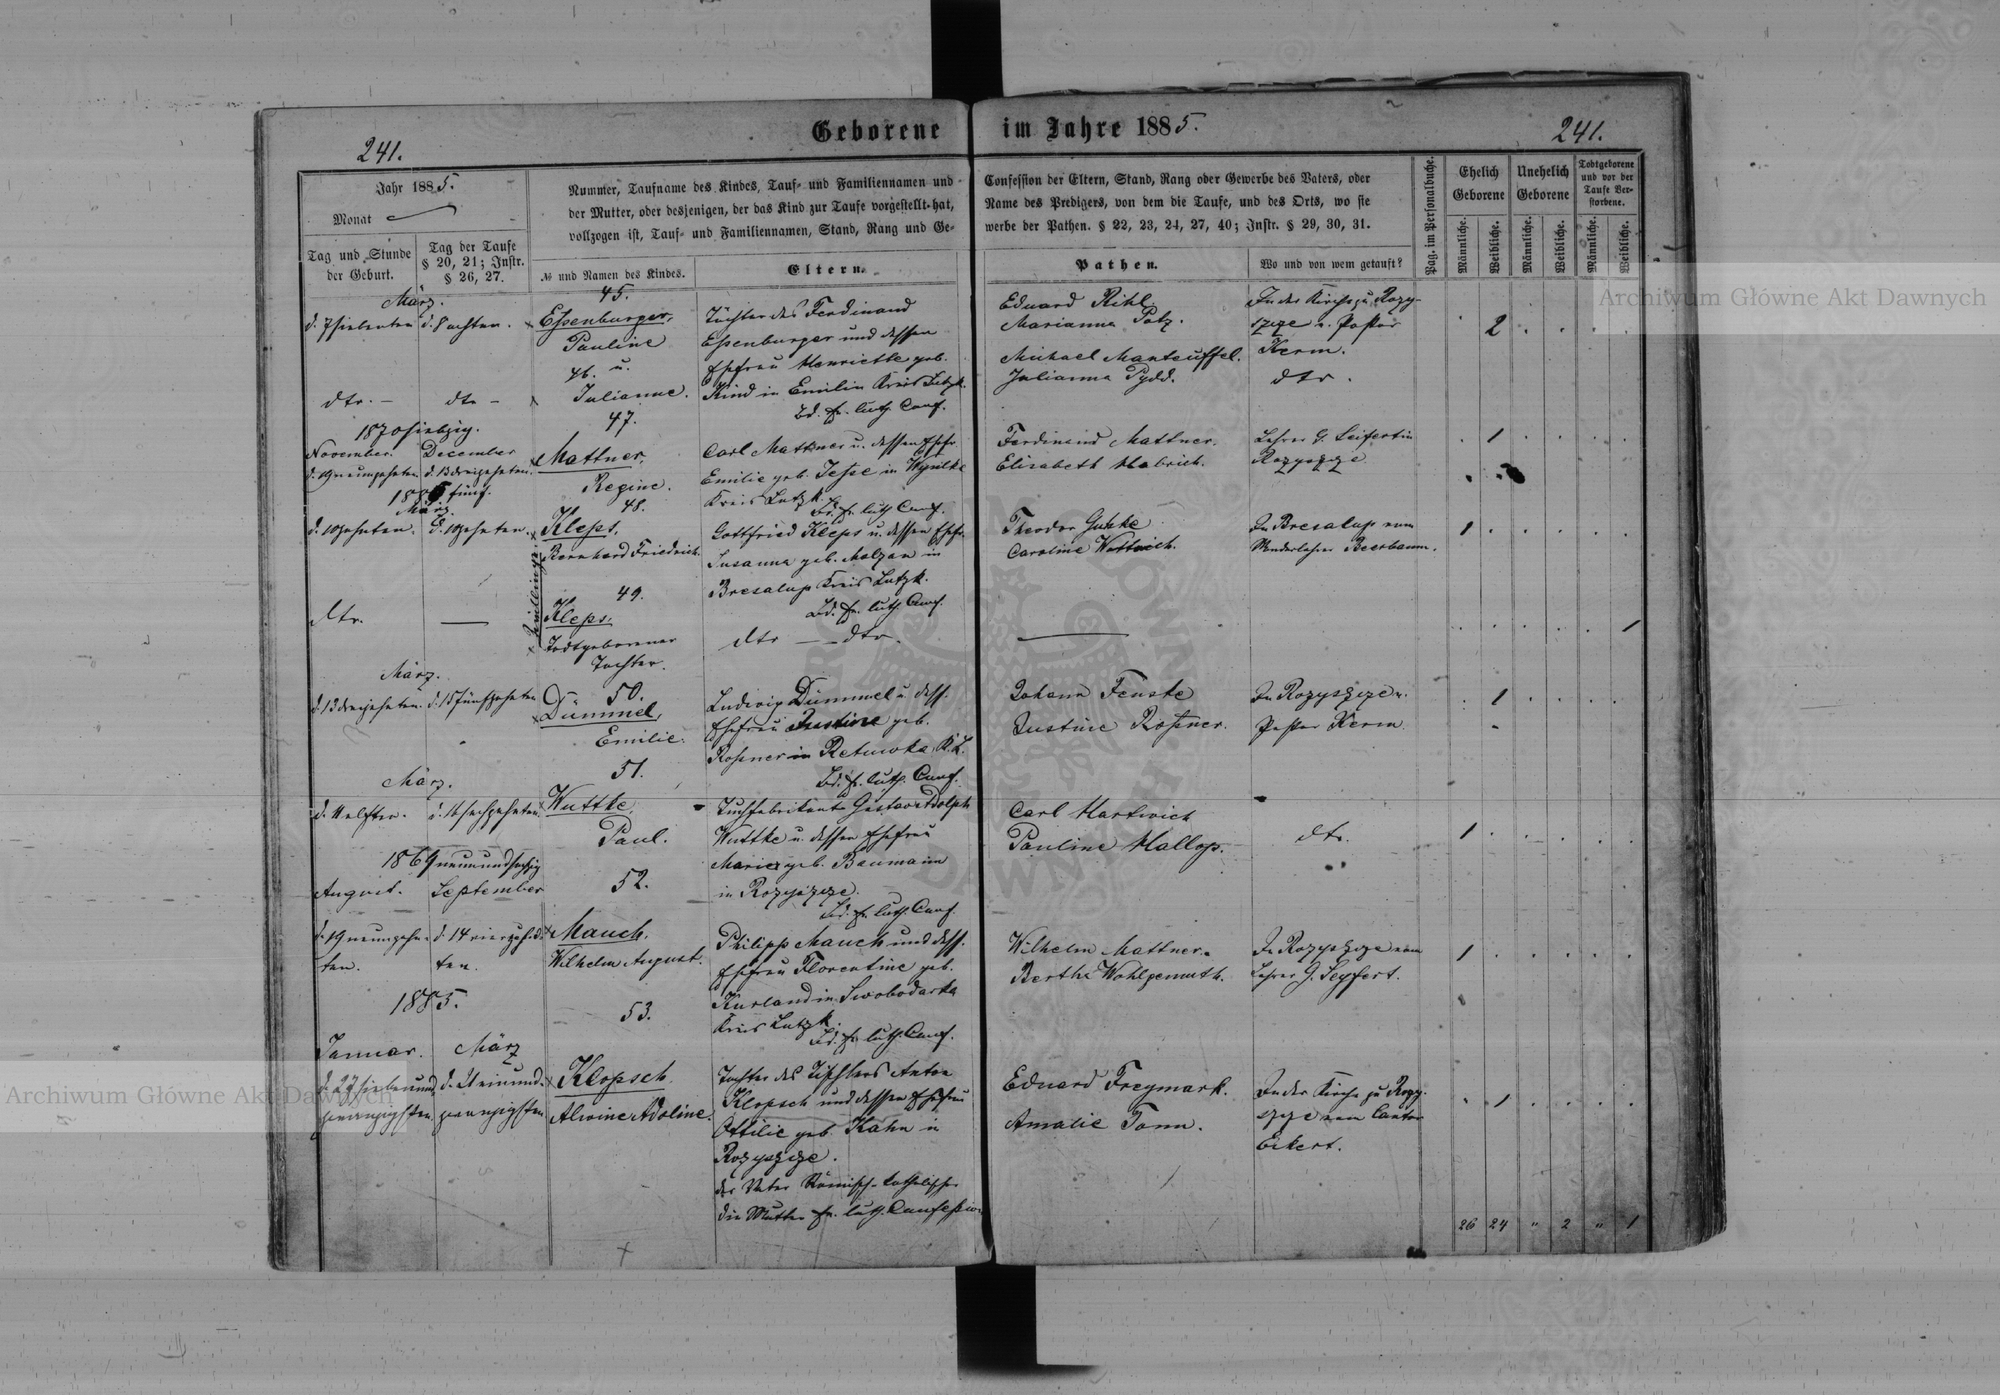 Geborene im Jahre 1885.
241.
241.
Jahr 1885.
Monat
Tag und Stunde der Geburt.
Tag der Taufe § 20, 21; Instr. § 26, 27.
Nummer, Taufname des Kindes, Tauf- und Familiennamen und
der Mutter, oder desjenigen, der das Kind zur Taufe vorgestellt hat,
vollzogen ist, Tauf- und Familiennamen, Stand, Rang und Ge-
№ und Namen des Kindes.
Eltern.
Confession der Eltern, Stand, Rang oder Gewerbe des Vaters, oder
Name des Predigers, von dem die Taufe, und des Orts, wo sie
werbe der Pathen. § 22, 23, 24, 27, 40; Instr. § 29, 30, 31.
Pathen.
Wo und von wem getauft?
Pag. im Personalbuche.
Ehelich Geborene
Unehelich Geborene
Todtgeborene und vor der Taufe Verstorbene.
Männliche.
Weibliche.
Männliche.
Weibliche.
Männliche.
Weibliche.
März.
d. 7 siebenten
d. 8 achten.
45.
Essenburger,
Pauline
46. u.
Julianne.
dtr. –
dtr –
Tochter des Ferdinand
Essenburger und dessen
Ehefrau Henriette geb.
Kind in Emilin Kreis Lutzk.
Bd. ev. luth. Conf.
Eduard Rihl.
Marianna Polz.
Michael Manteuffel.
Julianna Pydd.
In der Kirche zu Rozy-
szcze v. Pastor
Kerm.
dtr.
2
1870 siebzig.
November.
December
d. 19 neunzehnten
d. 13 dreizehnten.
47.
Mattner,
Regine.
Carl Mattner u. dessen Ehefr.
Emilie geb. Jesse in
Kreis Lutzk.
Bd. ev. luth. Conf.
Ferdinand Mattner.
Elisabeth Habrich.
Lehrer G. Seifert in
Rozyszcze
1
1885 fünf.
März.
d. 10 zehnten.
d. 10 zehnten.
48.
Kleps.
Bernhard Friedrich.
Zwillinge
Gottfried Kleps u. dessen Ehefr.
Susanna geb. Malzan in
Bresalup Kreis Lutzk.
Bd. ev. luth. Conf.
Theodor Guhke
Caroline Wuttrich.
In Bresalup vom
Wanderlehrer Beerbaum.
1
dtr.
49.
Kleps.
Todtgeborener
Tochter.
dtr — dtr.
1
März.
d. 13 dreizehnten.
d. 15 fünfzehnten
50.
Dümmel,
Emilie.
Ludwig Dümmel u. dess.
Ehefrau Justine geb.
Rossner in Retuwka K. L.
Bd. ev. luth. Conf.
Johann Fenske
Justine Rossner.
In Rozyszcze v.
Pastor Kerm.
1
März.
d. 11 elften.
d. 16 sechzehnten.
51.
Wuttke,
Paul.
Tuchfabrikant Gustav Adolph
Wuttke u. dessen Ehefrau
Marie geb. Baumann
in Rozyszcze.
Bd. ev. luth. Conf.
Carl Hartwich
Pauline Hallop.
dtr.
1
1869 neunundsechzig
August.
September
52.
d. 19 neunzehn-
ten.
d. 14 vierzehn-
ten.
Mauch,
Wilhelm August.
Philipp Mauch und dess.
Ehefrau Florentine geb.
Kurland in Swobodarka
Kreis Lutzk.
Bd. ev. luth. Conf.
Wilhelm Mattner.
Bertha Wohlgemuth.
In Rozyszcze vom
Lehrer G. Seyfert.
1
1885.
Januar.
März
53.
d. 27 siebenund-
zwanzigsten
d. 21 einund-
zwanzigsten
Klopsch.
Alwine Adoline.
Tochter des Tischlers Anton
Klopsch und dessen Ehefrau
Ottilie geb. Kahn in
Rozyszcze.
der Vater Römisch-katholischer
die Mutter ev. luth. Confession
Eduard Freymark.
Amalie Tonn.
In der Kirche zu Rozy-
szcze vom Cantor
Eikert.
1
26 24 " 2 " 1
Archiwum Główne Akt Dawnych
Archiwum Główne Akt Dawnych